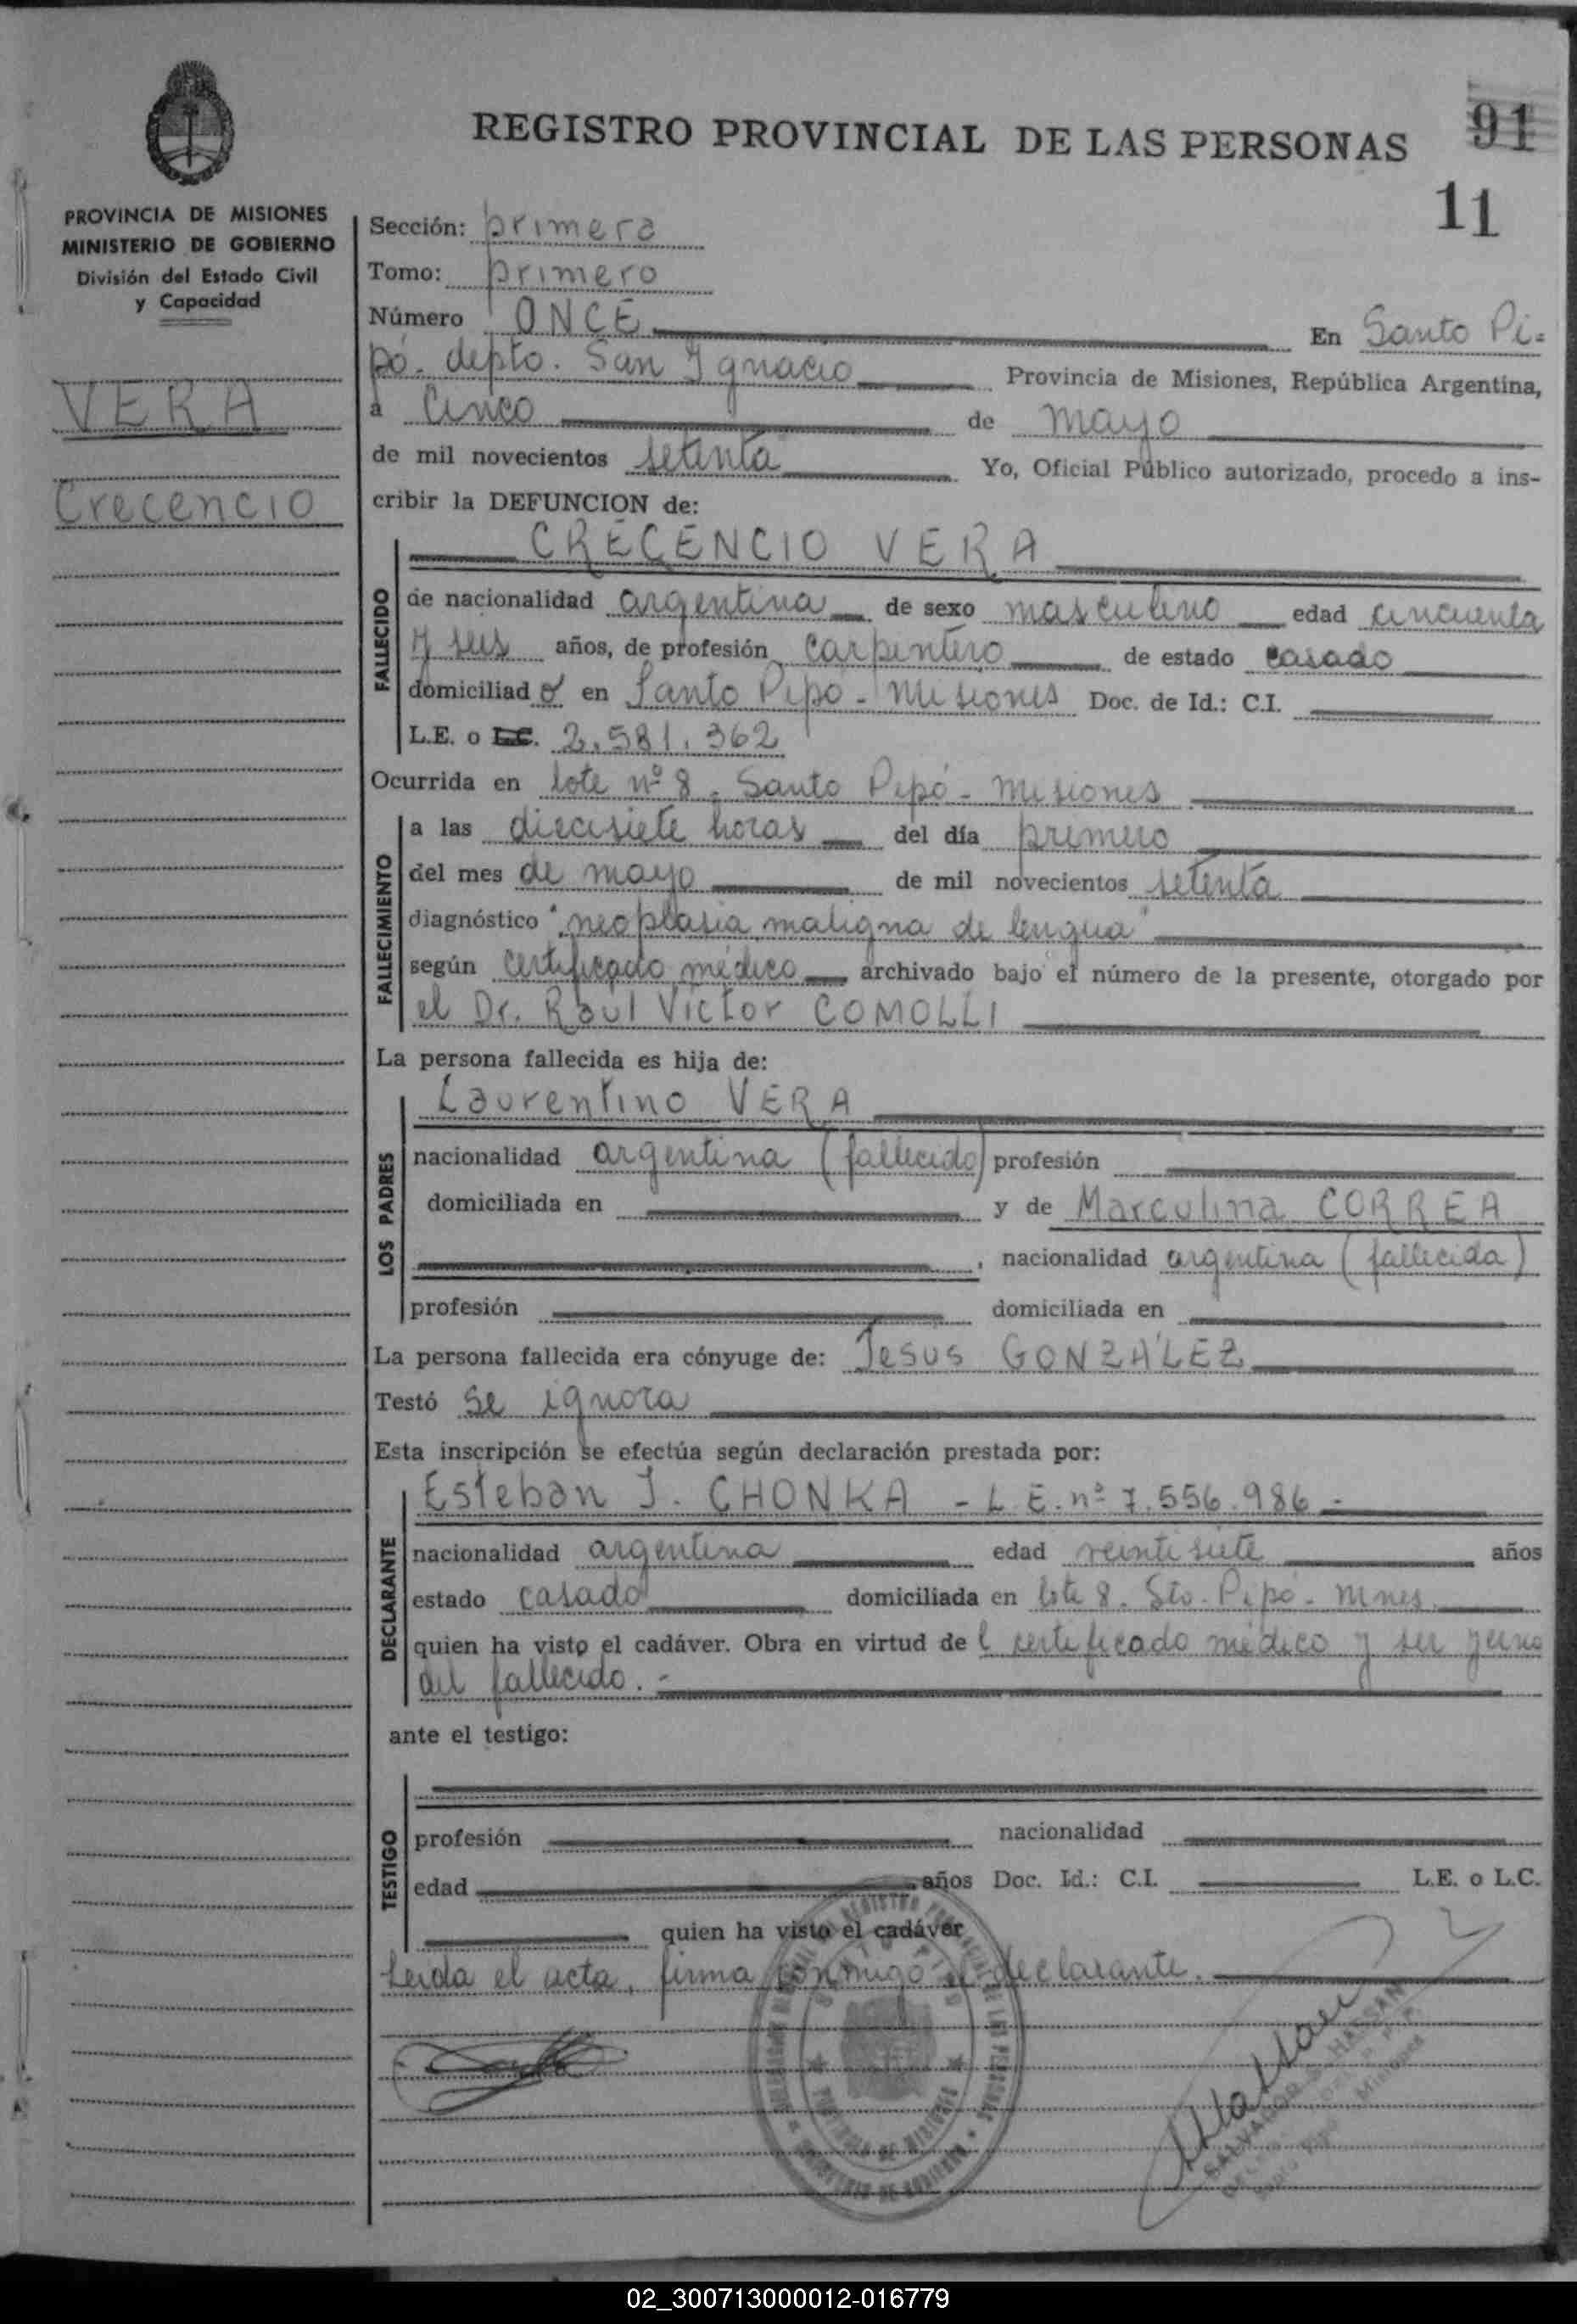 REGISTRO PROVINCIAL DE LAS PERSONAS
91
11
PROVINCIA DE MISIONES
MINISTERIO DE GOBIERNO
División del Estado Civil
y Capacidad
VERA
Crecencio
Sección: primera
Tomo: primero
Número ONCE En Santo Pi-
pó. depto. San Ignacio Provincia de Misiones, República Argentina,
a Cinco de mayo
de mil novecientos setenta Yo, Oficial Público autorizado, procedo a ins-
cribir la DEFUNCION de:
CRECENCIO VERA
FALLECIDO
de nacionalidad argentina de sexo masculino edad cincuenta
y seis años, de profesión carpintero de estado casado
domiciliad o en Santo Pipó - Misiones Doc. de Id.: C.I.
L.E. o L.C. 2.581.362
Ocurrida en lote nº 8. Santo Pipó - Misiones
FALLECIMIENTO
a las diecisiete horas del día primero
del mes de mayo de mil novecientos setenta
diagnóstico "neoplasia maligna de lengua"
según certificado médico archivado bajo el número de la presente, otorgado por
el Dr. Raúl Victor COMOLLI
La persona fallecida es hija de:
LOS PADRES
Laurentino VERA
nacionalidad argentina (fallecido) profesión
domiciliada en y de Marculina CORREA
, nacionalidad argentina (fallecida)
profesión domiciliada en
La persona fallecida era cónyuge de: Jesus GONZÁLEZ
Testó se ignora
Esta inscripción se efectúa según declaración prestada por:
DECLARANTE
Esteban J. CHONKA - L.E. nº 7.556.986 -
nacionalidad argentina edad veintisiete años
estado casado domiciliada en lote 8. Sto. Pipó - Mnes.
quien ha visto el cadáver. Obra en virtud de l certificado médico y ser yerno
del fallecido. -
ante el testigo:
TESTIGO
profesión nacionalidad
edad años Doc. Id.: C.I. L.E. o L.C.
quien ha visto el cadáver
Leida el acta, firma conmigo el declarante.
SALVADOR S. HASSAN
02_300713000012-016779